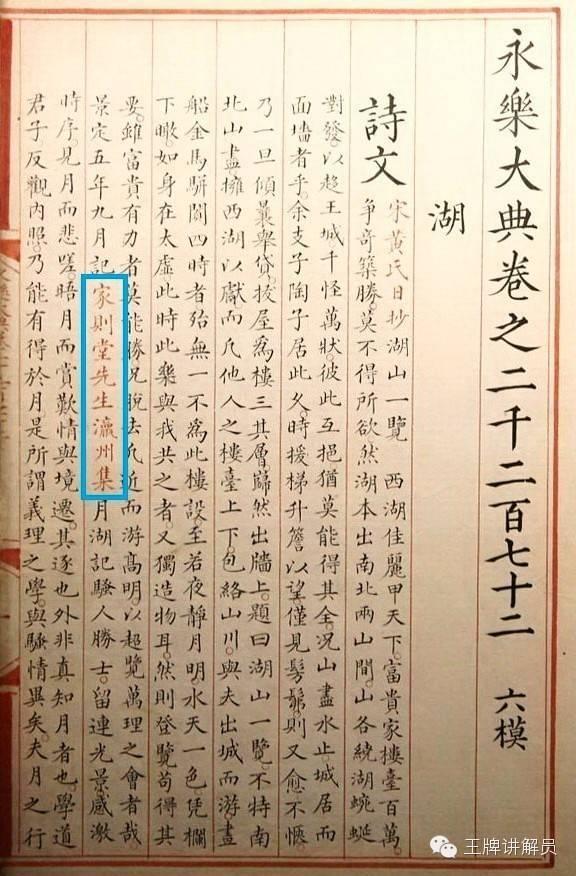 永樂大典卷之二千二百七十二 六模
湖
詩文 宋黃氏日抄湖山一覽 西湖佳麗甲天下富貴家樓臺百萬
爭奇築勝莫不得所欲然湖本出南北兩山間山各繞湖蜿蜒
對發以趨王城千怪萬狀彼此互挹猶莫能得其全况山盡水止城居而
面墻者乎余支子陶子居此久時援梯升簷以望僅見髣髴則又愈不愜
乃一旦傾囊舉貸拔屋爲樓三其層巋然出牆上題曰湖山一覽不特南
北山盡擁西湖以獻而凡他人之樓臺上下包絡山川與夫出城而游晝
船金馬駢闐四時者殆無一不為此樓設至若夜靜月明水天一色凭欄
下瞰如身在太虛此時此樂與我共之者又獨造物耳然則登覽苟得其
要雖富貴有力者莫能勝况脫去凡近而游高明以超覽萬理之會者哉
景定五年九月記家則堂先生瀛州集月湖記騷人勝士留連光景感激
時序見月而悲嗟晤月而賞歎情與境遷其逐也外非真知月者也學道
君子反觀內照乃能有得於月是所謂義理之學與騷情異矣夫月之行
王牌讲解员